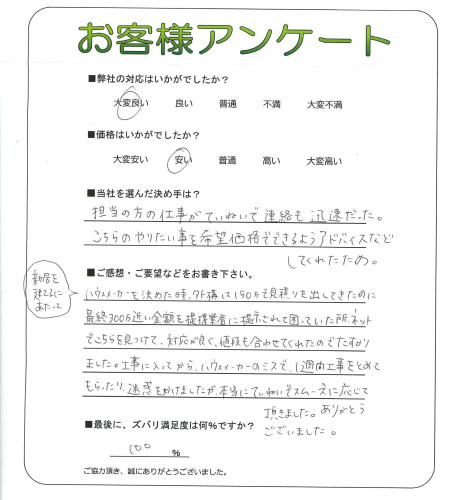 お客様アンケート
■弊社の対応はいかがでしたか？
大変良い 良い 普通 不満 大変不満
■価格はいかがでしたか？
大変安い 安い 普通 高い 大変高い
■当社を選んだ決め手は？
担当の方の仕事がていねいで連絡も迅速だった。
こちらのやりたい事を希望価格でできるようアドバイスなど
してくれたため。
新居を
建てるに
あたって
■ご感想・ご要望などをお書き下さい。
ハウスメーカーを決めた時、外構は150万で見積りを出してきたのに
最終300万近い金額を提携業者に提示されて困っていた所、ネット
でこちらを見つけて、対応が良く、値段も合わせてくれたのでたすかり
ました。工事に入ってから、ハウスメーカーのミスで、1週間工事をとめて
もらったり、迷惑をかけましたが、本当にていねいでスムーズに応じて
頂きました。ありがとう
ございました。
■最後に、ズバリ満足度は何%ですか？
100 %
ご協力頂き、誠にありがとうございました。